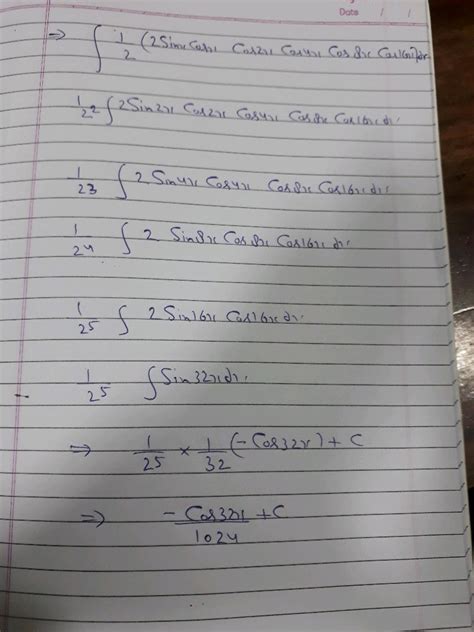 Date / /
→ ∫ 1/2 (2Sinx Cosx Cos2x Cos4x Cos8x Cos16x)dx
1/2² ∫ 2Sin2x Cos2x Cos4x Cos8x Cos16x dx.
1/23 ∫ 2 Sin4x Cos4x Cos8x Cos16x dx.
1/24 ∫ 2 Sin8x Cos8x Cos16x dx.
1/25 ∫ 2Sin16x Cos16x dx.
1/25 ∫ Sin32x dx.
⇒ 1/25 × 1/32 (-Cos32x) + C
⇒ -Cos32x/1024 + C